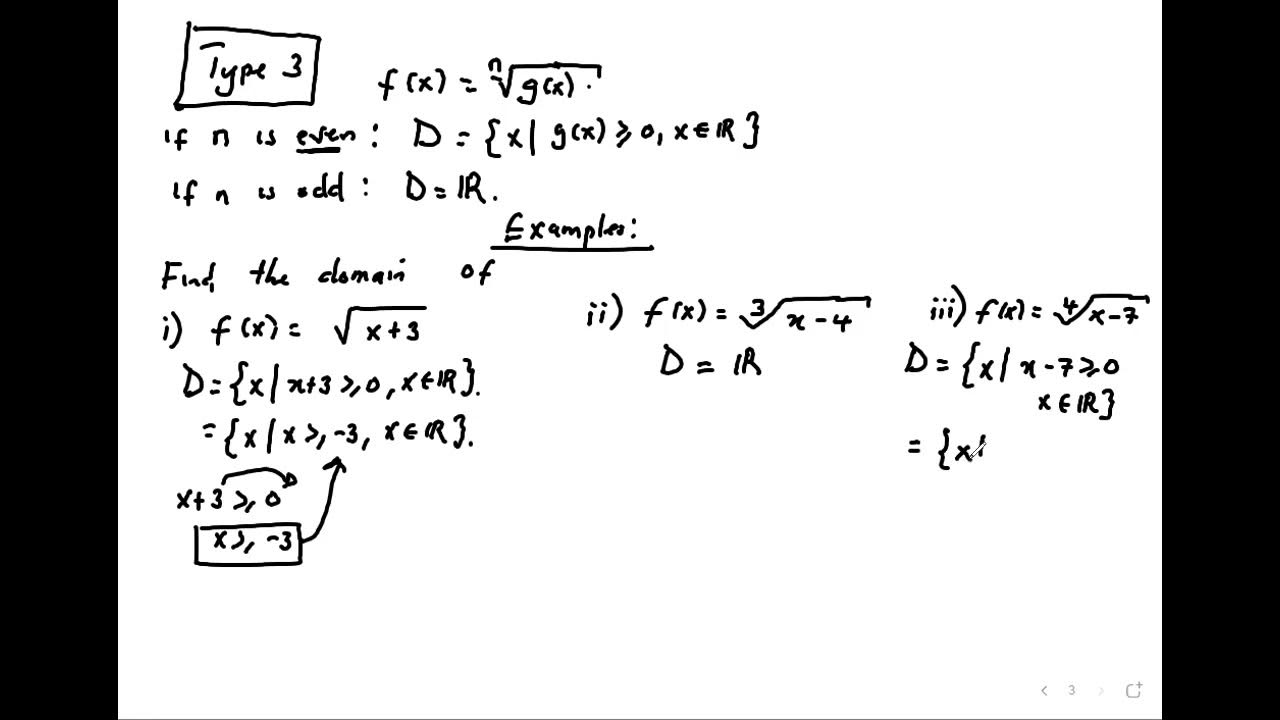 Type 3
f(x) = ⁿ√g(x) .
if n is even : D = {x | g(x) ⩾ 0, x ∈ ℝ}
if n is odd : D = ℝ.
Examples:
Find the domain of
i) f(x) = √x+3
D = {x | x+3 ⩾ 0, x ∈ ℝ}.
= {x | x ⩾ -3, x ∈ ℝ}.
x+3 ⩾ 0
x ⩾ -3
ii) f(x) = ³√x-4
D = ℝ
iii) f(x) = ⁴√x-7
D = {x | x-7 ⩾ 0
x ∈ ℝ}
= {x |
3